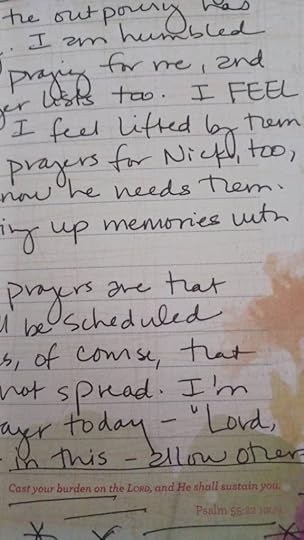 the outpouring has
. I am humbled
praying for me, and
er lists too. I FEEL
I feel lifted by them
prayers for Nick, too,
now he needs them.
ing up memories with
prayers are that
l be scheduled
s, of course, that
not spread. I'm
ayer today - "Lord,
in this - allow other
Cast your burden on the LORD, and He shall sustain you.
Psalm 55:22 NKJV